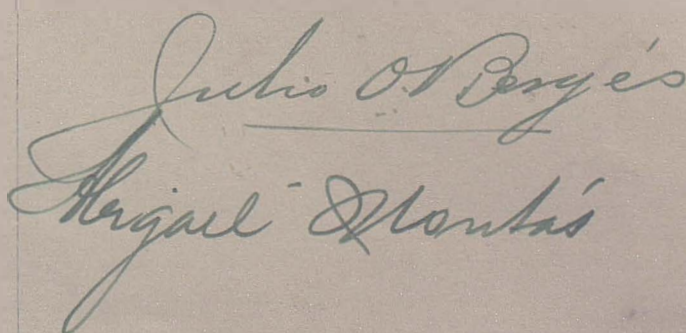 Julio O. Bergés
Abigail Montás